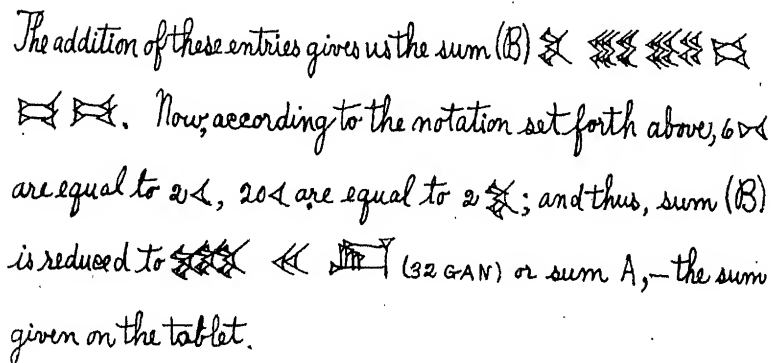 The addition of these entries gives us the sum (B)
. Now, according to the notation set forth above, 6
are equal to 2 , 20 are equal to 2 ; and thus, sum (B)
is reduced to (32 GAN) or sum A,—the sum
given on the tablet.